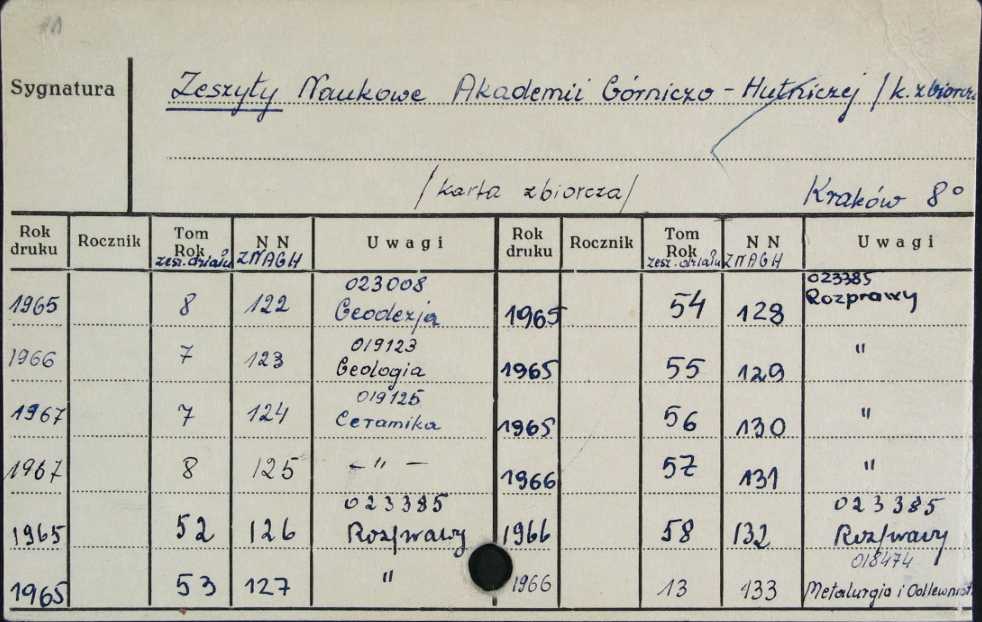 Sygnatura
Zeszyty Naukowe Akademii Górniczo-Hutniczej /k. zbiorcza
/karta zbiorcza/ Kraków 8°
Rok druku Rocznik Tom Rok zesz. działu N N ZNAGH Uwagi Rok druku Rocznik Tom Rok zesz. działu N N ZNAGH Uwagi
1965 8 122 023008 Geodezja 1965 54 128 023385 Rozprawy
1966 7 123 019123 Geologia 1965 55 129 "
1967 7 124 019125 Ceramika 1965 56 130 "
1967 8 125 - " - 1966 57 131 "
1965 52 126 023385 Rozprawy 1966 58 132 023385 Rozprawy
1965 53 127 " 1966 13 133 018474 Metalurgia i Odlewnict